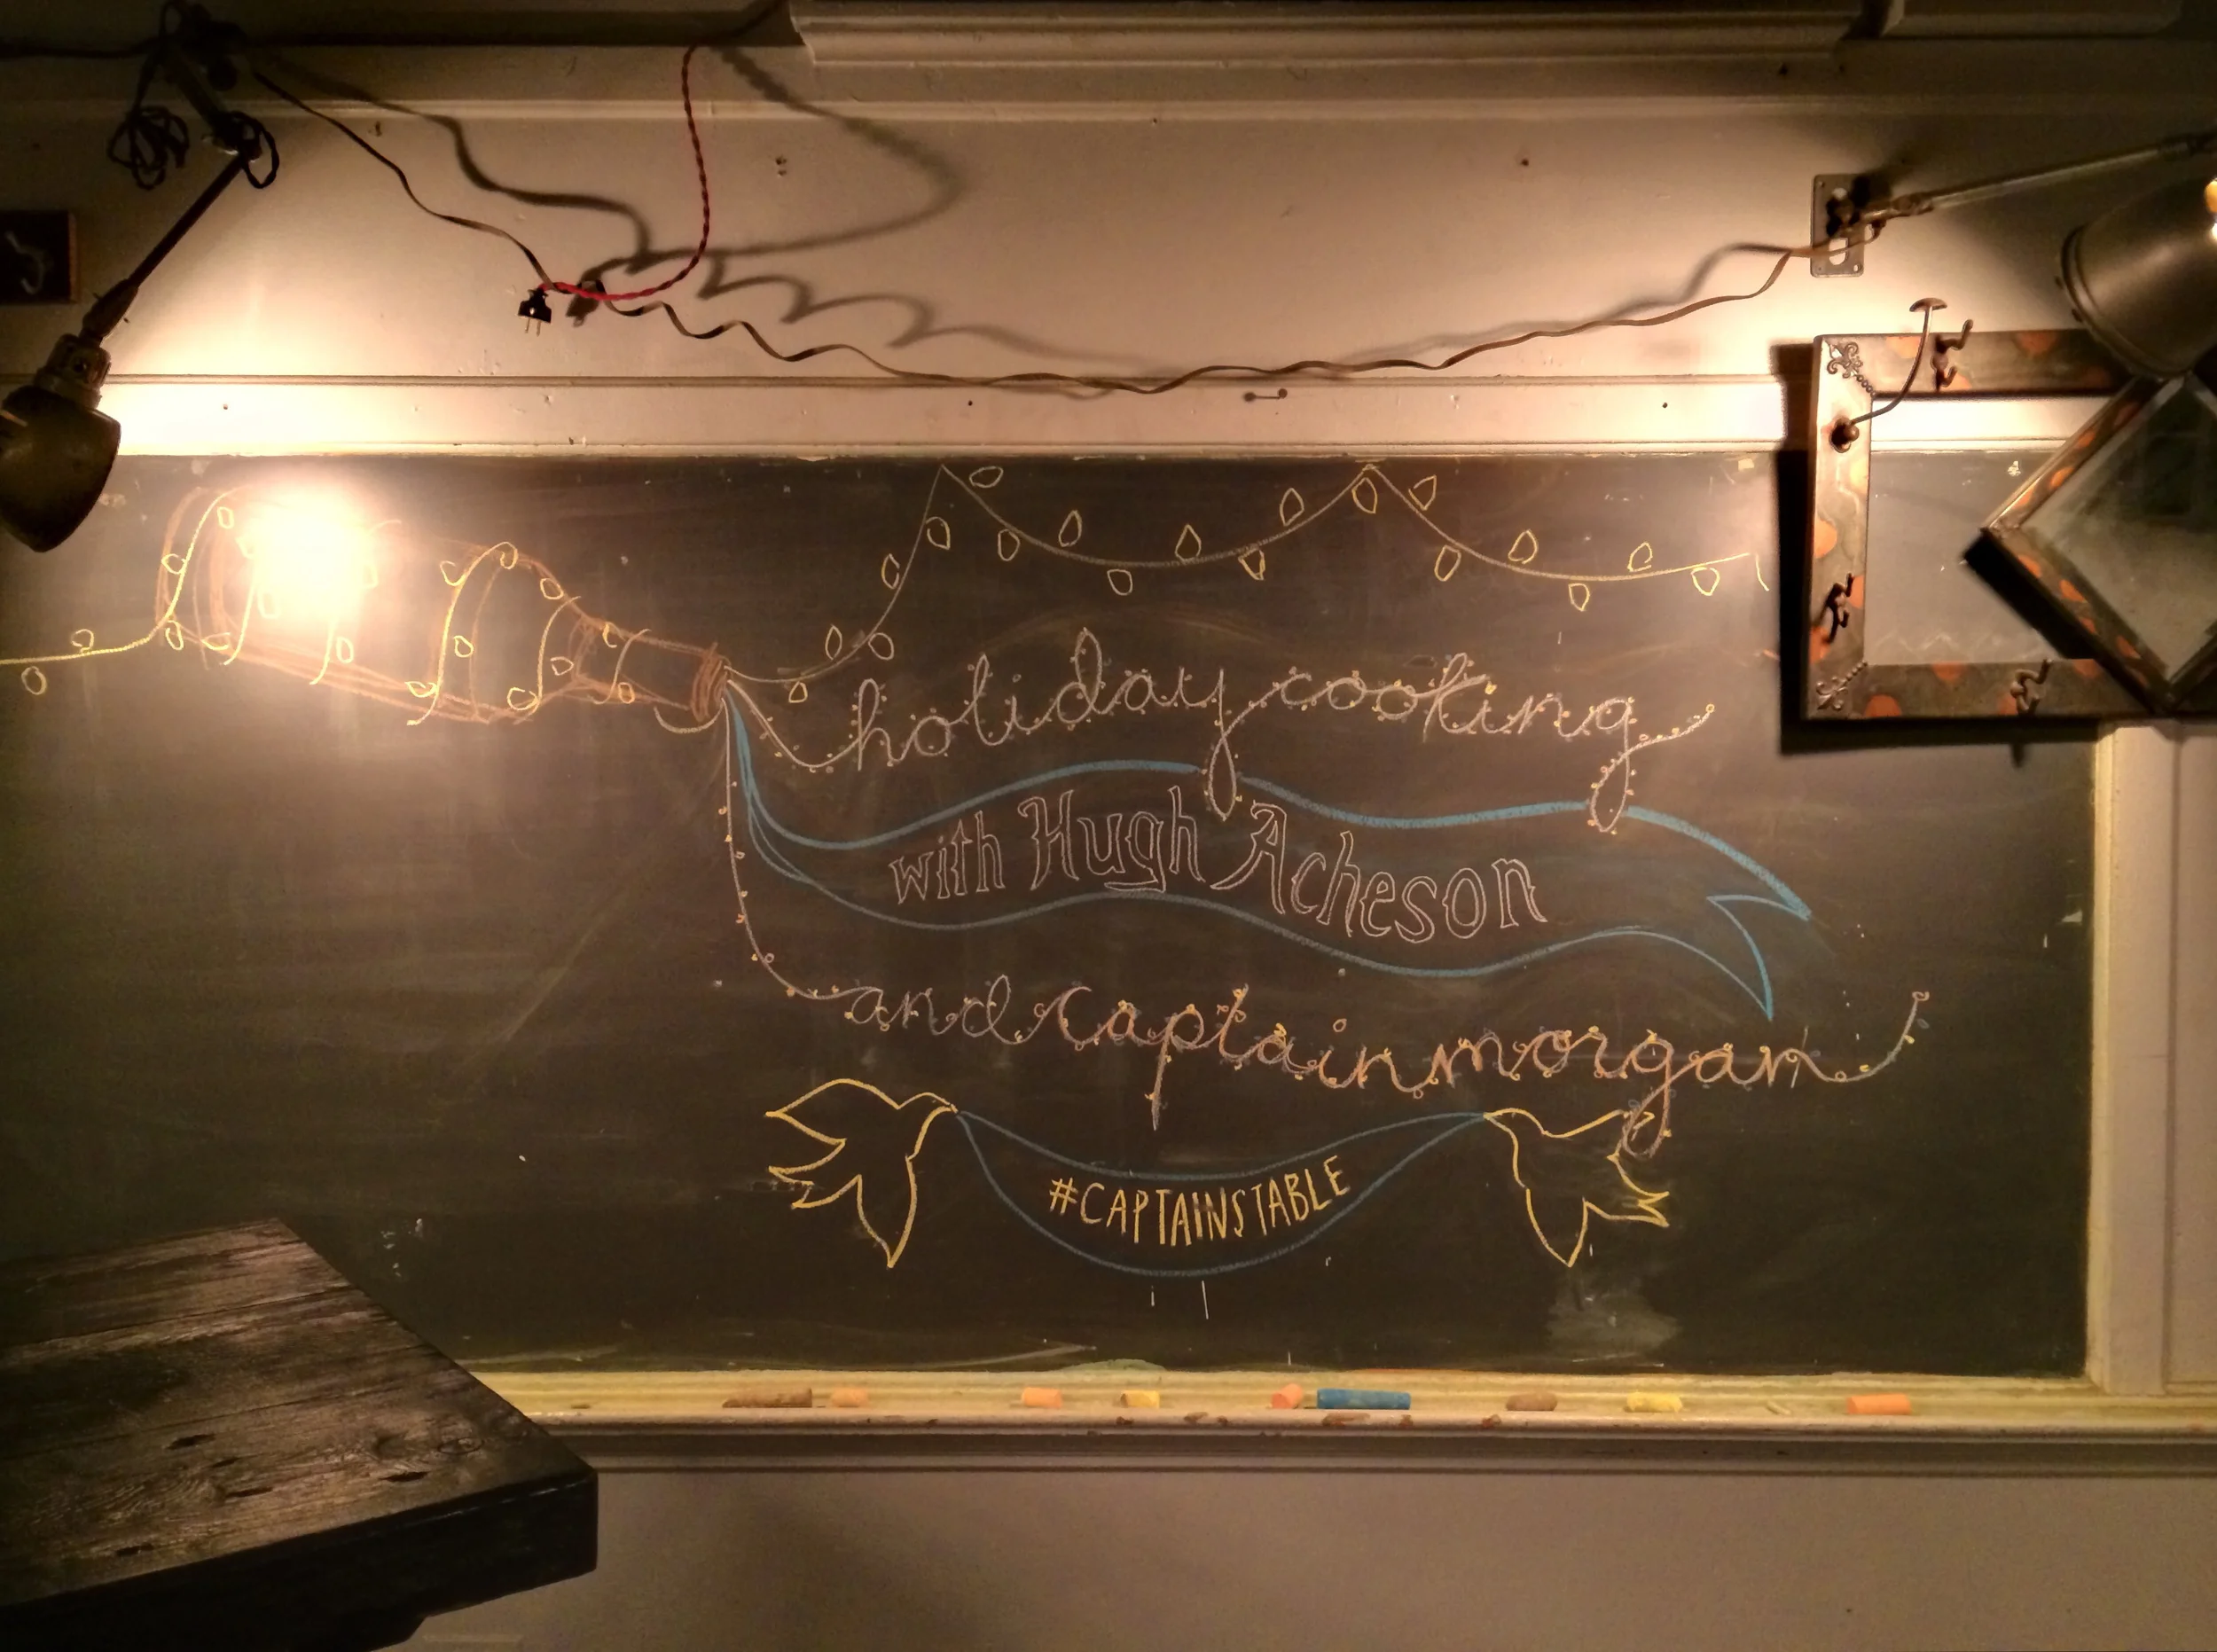 holiday cooking
with Hugh Acheson
and captain morgan
#CAPTAINSTABLE